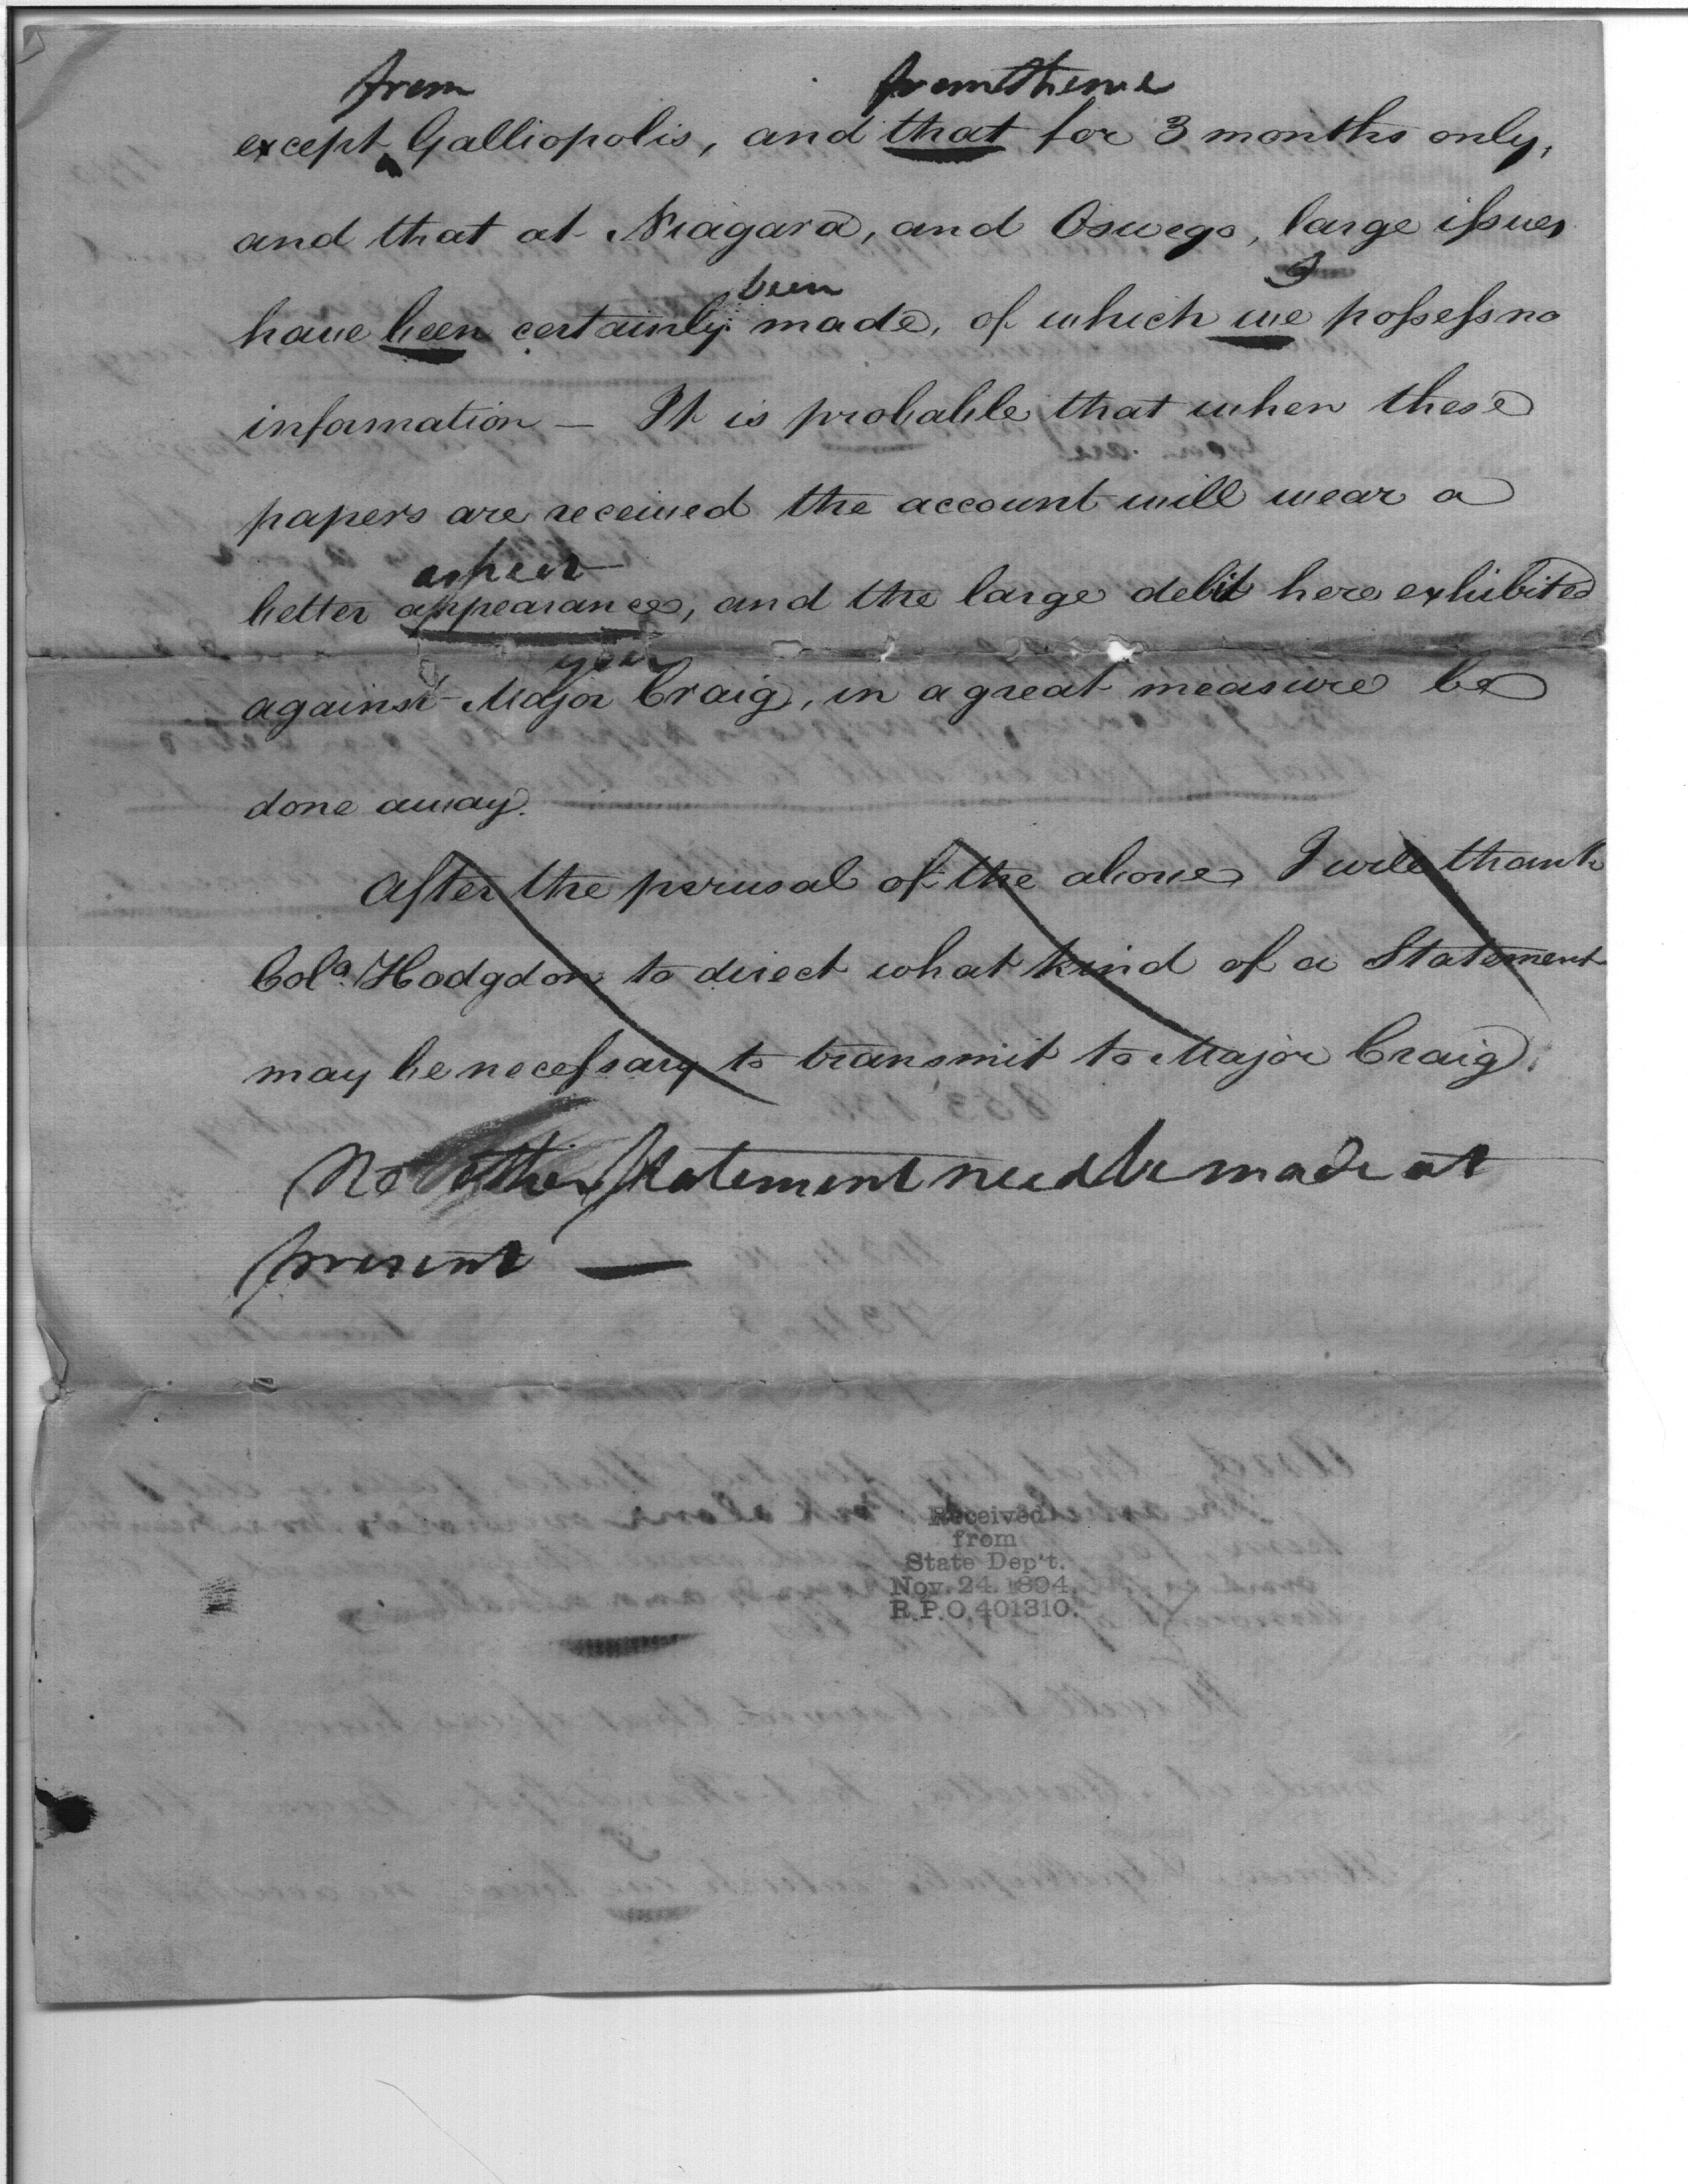 from fromthence
except Galliopolis, and that for 3 months only,
and that at Niagara, and Oswego, large issues
been I
have been certainly made, of which we possess no
information — It is probable that when these
papers are received the account will wear a
aspect
better appearance, and the large debit here exhibited
you
against Major Craig, in a great measure be
done away.
After the perusal of the above I will thank
Colo. Hodgdon to direct what kind of a Statement
may be necessary to transmit to Major Craig.
No other Statement need be made at
present —
Received
from
State Dep't.
Nov. 24. 1894.
R.P.O. 401310.